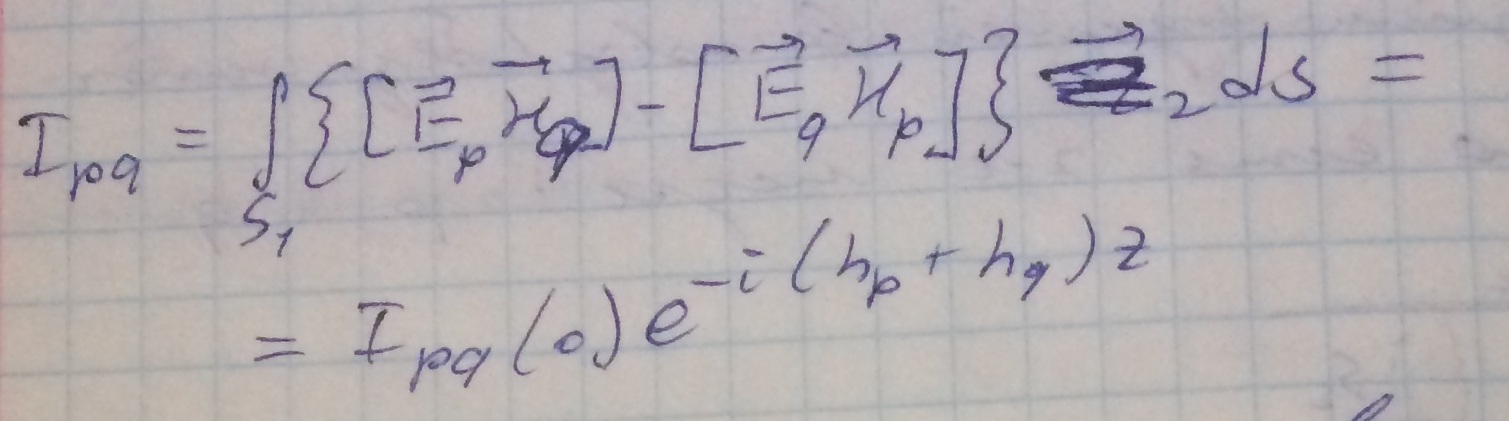 I_{pq} = \int_{S_1} \{ [\vec{E}_p \vec{H}_q] - [\vec{E}_q \vec{H}_p] \} _2 ds =
= I_{pq}(0) e^{-i(h_p + h_q)z}